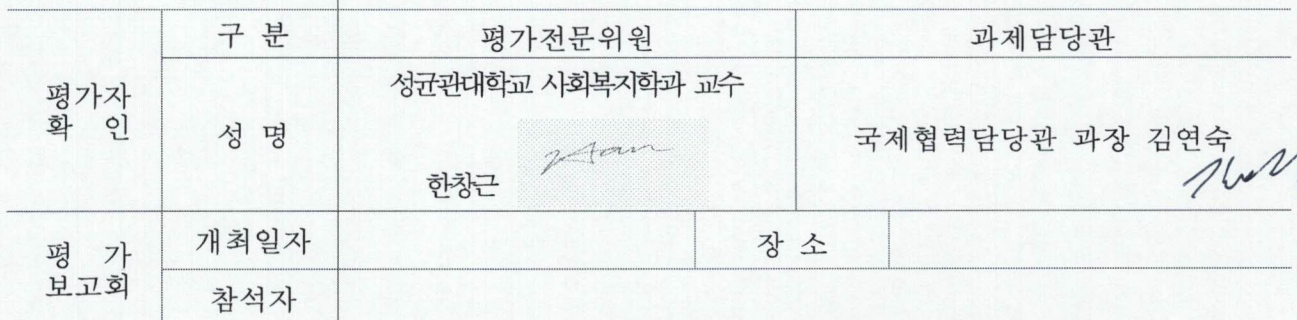 구 분 평가전문위원 과제담당관
평가자
확 인
성 명
성균관대학교 사회복지학과 교수
한창근
국제협력담당관 과장 김연숙
평 가
보고회
개최일자 장 소
참석자